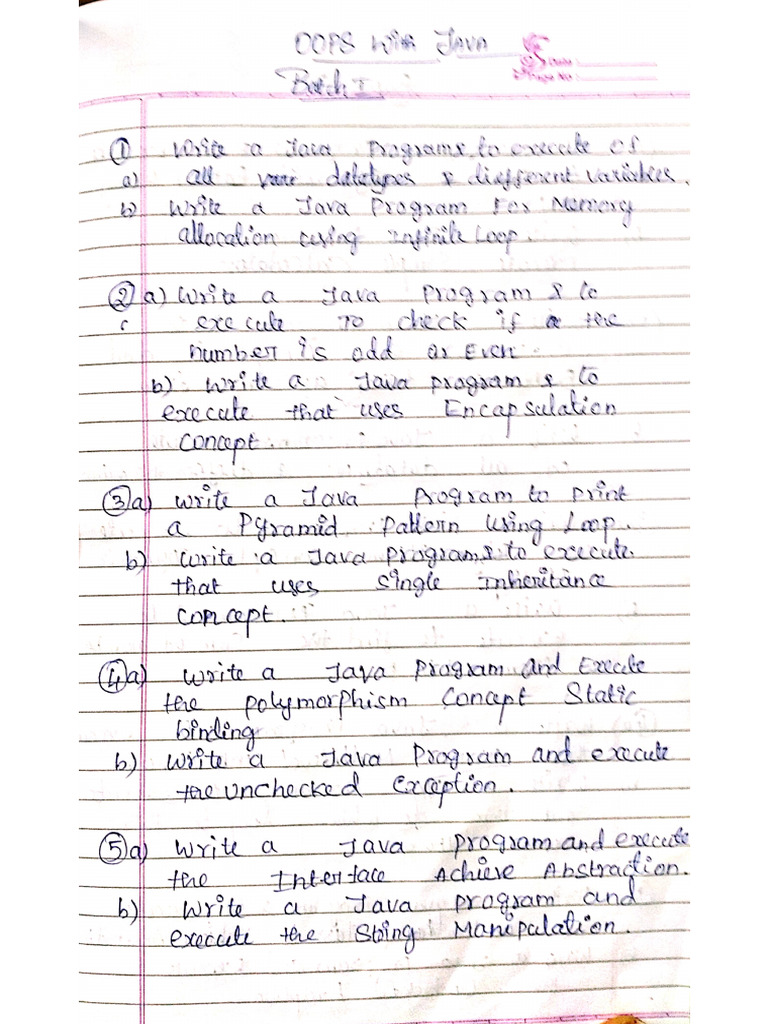 OOPS With JAVA
Date :
Page No :
Batch I
① Write a Java Programs to execute of
a) all datatypes & diefferent variables.
b) Write a Java Program For Memory
allocation cusing Infinite Loop.
② a) Write a Java Program & to
execute To check if the
number is odd or Even.
b) Write a Java program & to
execute that uses Encapsulation
concept.
③ a) Write a Java Program to Print
a Pyramid Pattern Using Loop.
b) Write a Java Programs to execute.
that uses single Inheritance
concept.
④ a) Write a Java Program and Execute
the polymorphism Concept Static
binding
b) Write a Java Program and execute
the unchecked Exception.
⑤ a) Write a Java Program and execute
the Interface Achieve Abstraction.
b) Write a Java Program and
execute the String Manipulation.